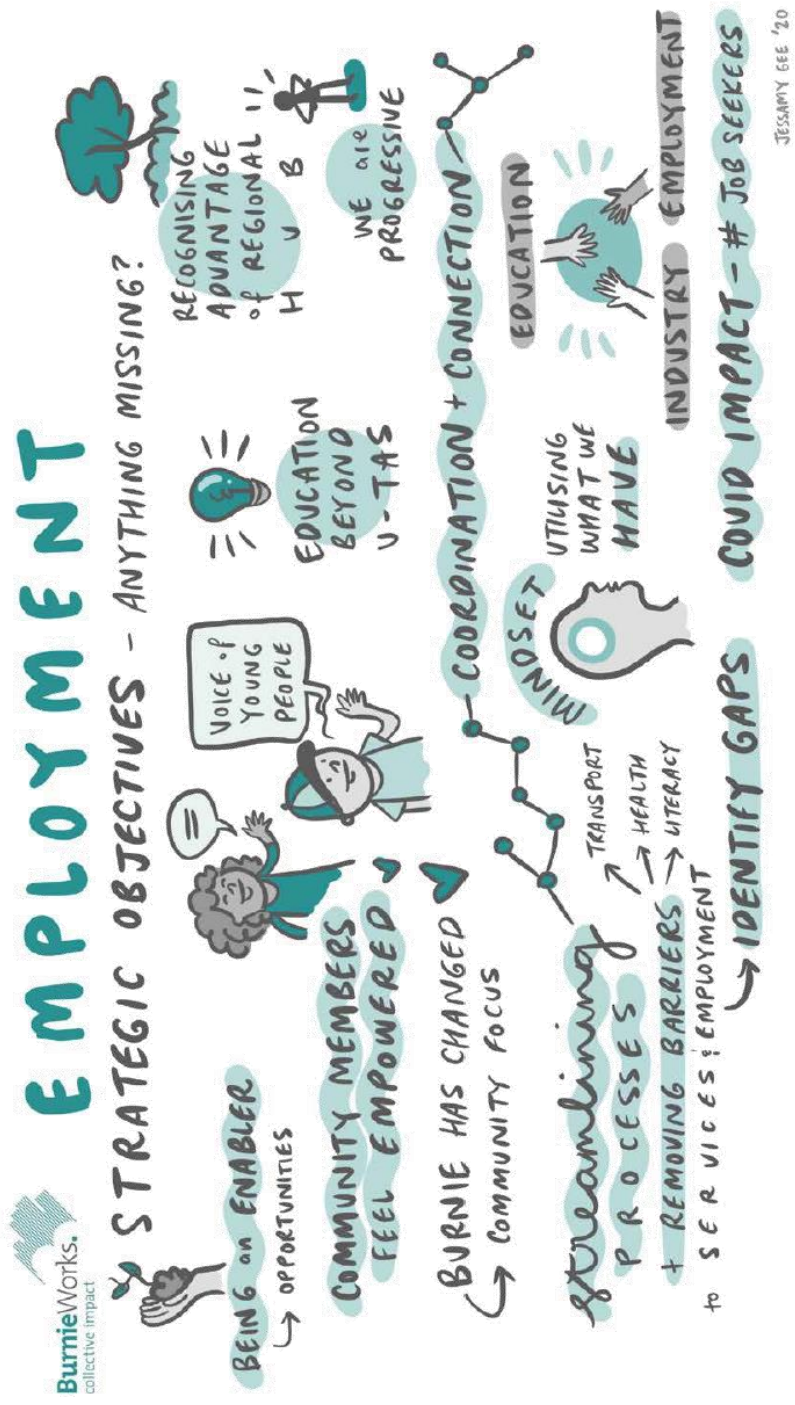 BurnieWorks.
collective impact
EMPLOYMENT
STRATEGIC OBJECTIVES - ANYTHING MISSING?
BEING an ENABLER
↳ OPPORTUNITIES
COMMUNITY MEMBERS
FEEL EMPOWERED
=
VOICE of
YOUNG
PEOPLE
EDUCATION
BEYOND
U-TAS
RECOGNISING
ADVANTAGE
of REGIONAL
HUB
WE are
PROGRESSIVE
BURNIE HAS CHANGED
↳ COMMUNITY FOCUS
COORDINATION + CONNECTION
streamlining
PROCESSES
+ REMOVING BARRIERS
to SERVICES & EMPLOYMENT
↗ TRANSPORT
→ HEALTH
→ LITERACY
↳ IDENTIFY GAPS
MINDSET
UTILISING
WHAT WE
HAVE
EDUCATION
INDUSTRY
EMPLOYMENT
COVID IMPACT - # JOB SEEKERS
JESSAMY GEE '20